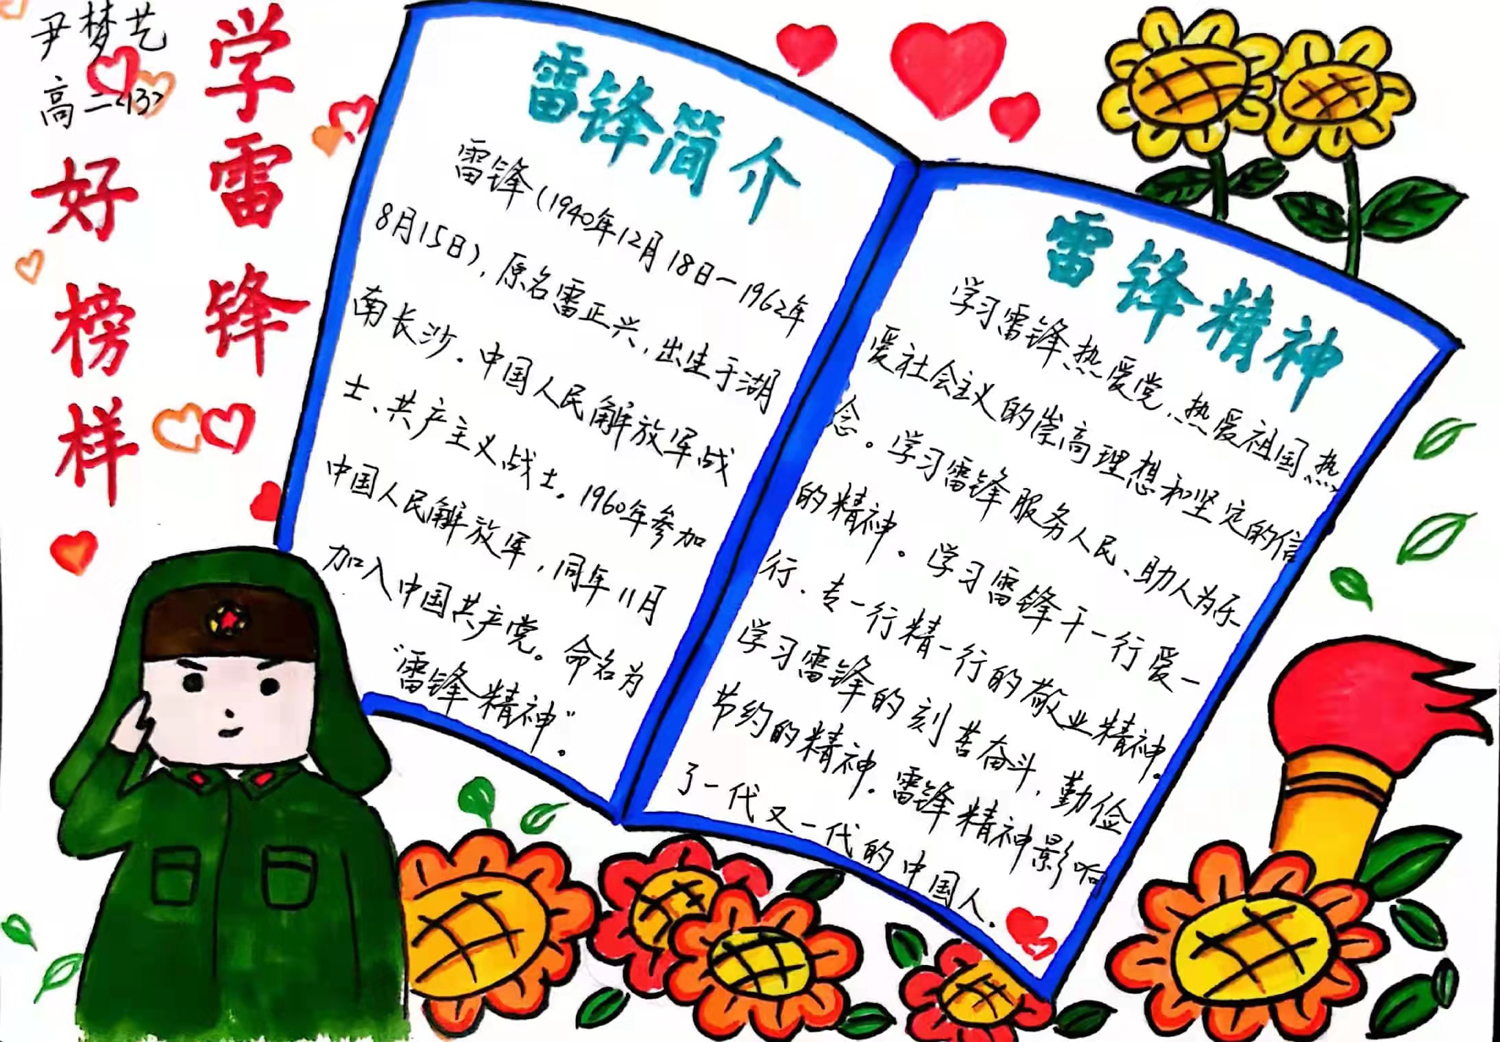 尹梦艺
高二<13>
学雷锋
好榜样
雷锋简介
雷锋(1940年12月18日—1962年
8月15日),原名雷正兴,出生于湖
南长沙.中国人民解放军战
士、共产主义战士。1960年参加
中国人民解放军,同年11月
加入中国共产党。命名为
“雷锋精神”。
雷锋精神
学习雷锋热爱党、热爱祖国热
爱社会主义的崇高理想和坚定的信
念。学习雷锋服务人民、助人为乐
的精神。学习雷锋干一行爱一
行、专一行精一行的敬业精神。
学习雷锋的刻苦奋斗,勤俭
节约的精神.雷锋精神影响
了一代又一代的中国人.